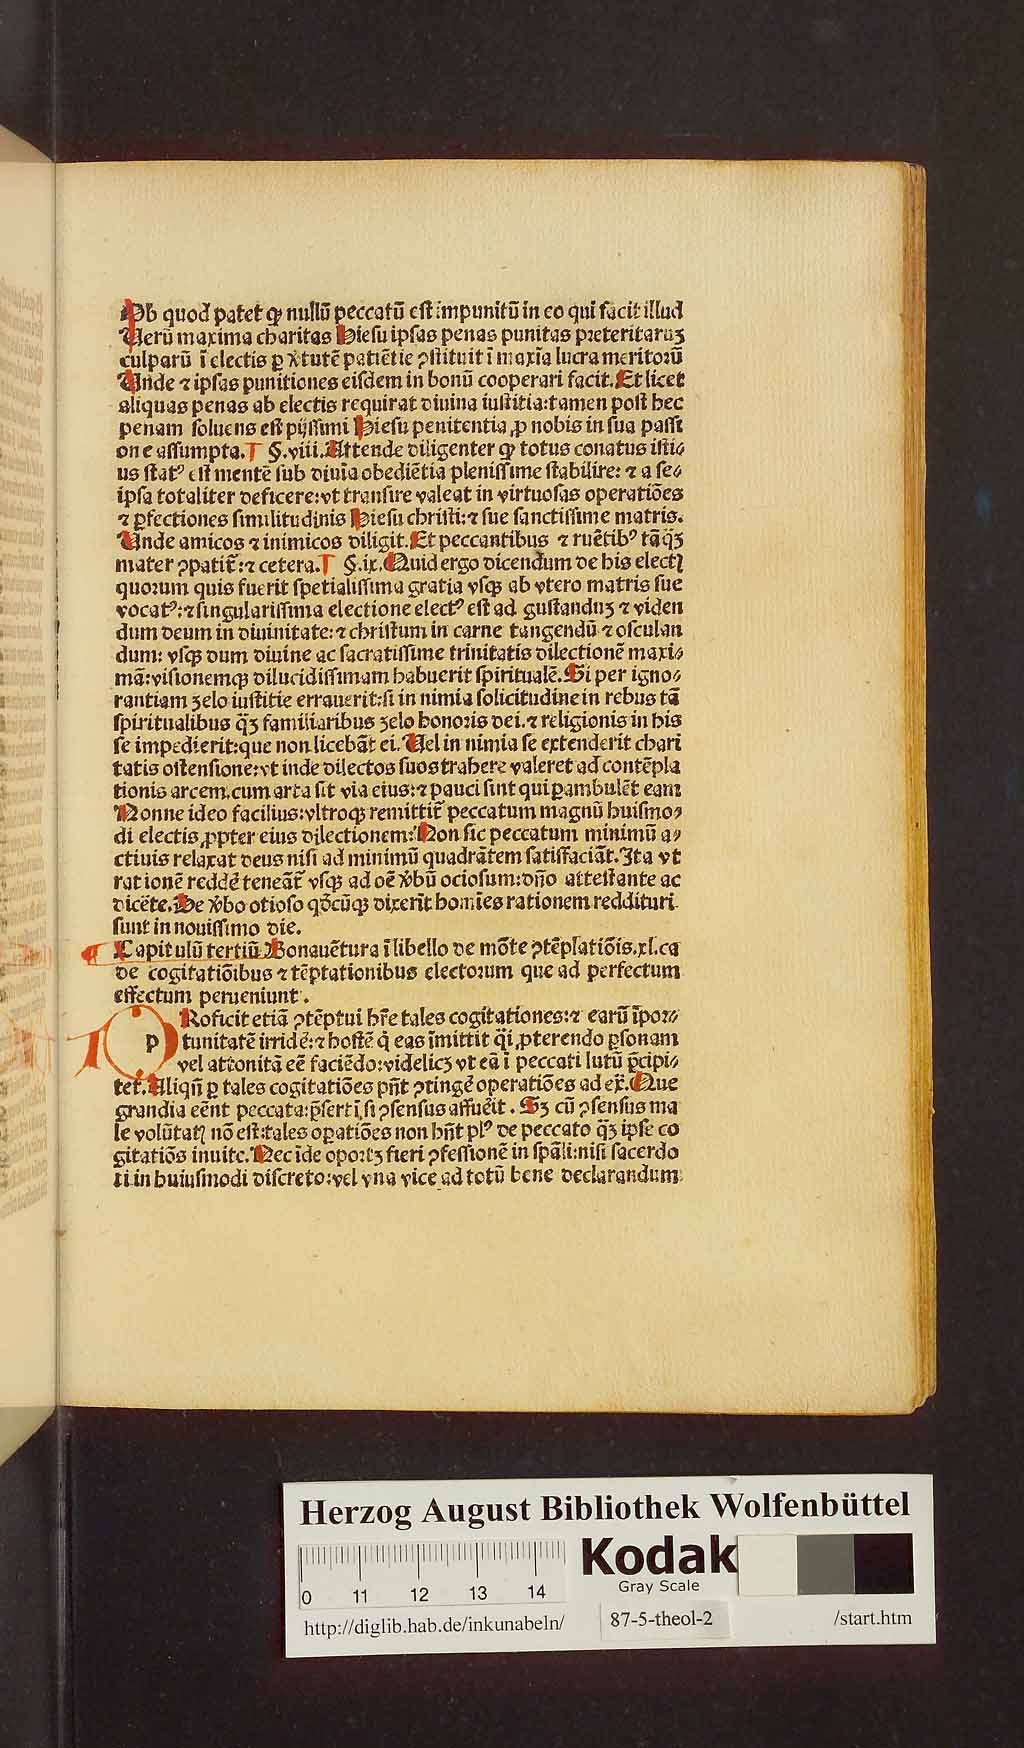 Ob quod patet ꝙ nullū peccatū est impunitū in eo qui facit illud
Uerū maxima charitas Hiesu ipsas penas punitas preteritarꝫ
culparū ī electis ꝑ v̓tutē patiētie ꝯstituit ī maxīa lucra meritorū
Unde ⁊ ipsas punitiones eisdem in bonū cooperari facit. Et licet
aliquas penas ab electis requirat diuina iustitia: tamen post hec
penam soluens est pijssimi Hiesu penitentia ꝓ nobis in sua passi
one assumpta. ¶ §.viii. Attende diligenter ꝙ totus conatus isti⸗
us statꝰ est mentē sub diuīa obediētia plenissime stabilire: ⁊ a se⸗
ipsa totaliter deficere: vt transire valeat in virtuosas operatiōes
⁊ ꝑfectiones similitudinis Hiesu christi: ⁊ sue sanctissime matris.
Unde amicos ⁊ inimicos diligit. Et peccantibus ⁊ ruētibꝰ tāq̄ꝫ
mater ꝯpatit̃: ⁊ cetera. ¶ §.ix. Quid ergo dicendum de his electꝭ
quorum quis fuerit spetialissima gratia vsqꝫ ab vtero matris sue
vocatꝰ: ⁊ singularissima electione electꝰ est ad gustanduꝫ ⁊ viden
dum deum in diuinitate: ⁊ christum in carne tangendū ⁊ osculan
dum: vsqꝫ dum diuine ac sacratissime trinitatis dilectionē maxi⸗
mā: visionemqꝫ dilucidissimam habuerit spiritualē. Si per igno⸗
rantiam zelo iustitie errauerit: si in nimia solicitudine in rebus tā
spiritualibus q̄ꝫ familiaribus zelo honoris dei. ⁊ religionis in his
se impedierit: que non licebāt ei. Uel in nimia se extenderit chari
tatis ostensione: vt inde dilectos suos trahere valeret ad contēpla
tionis arcem. cum arta sit via eius: ⁊ pauci sint qui ꝑambulēt eam
Nonne ideo facilius: vltroqꝫ remittit̃ peccatum magnū huismo⸗
di electis ꝓpter eius dilectionem: Non sic peccatum minimū a⸗
ctiuis relaxat deus nisi ad minimū quadrātem satisfaciāt. Ita vt
rationē redde̓ teneāt̃ vsqꝫ ad oē v̓bū ociosum: dn̄o attestante ac
dicēte. De v̓bo otioso qōcūqꝫ dixerīt homīes rationem reddituri
sunt in nouissimo die.
¶ Capitulū tertiū Bonauētura ī libello de mōte ꝯtēplatiōis. xl. ca
de cogitatiōibus ⁊ tēptationibus electorum que ad perfectum
effectum perueniunt.
pRoficit etiā ꝯtēptui hr̄e tales cogitationes: ⁊ earū īpor⸗
tunitatē irride̓: ⁊ hostē q̇ eas īmittit q̄i ꝓterendo ꝑsonam
vel attonitā eē faciēdo: videlicꝫ vt eā ī peccati lutū p̄cipi⸗
tet. Aliqn̄ ꝑ tales cogitatiōes pn̄t ꝯtinge̓ operatiōes ad ex̄. Que
grandia eēnt peccata: p̄sertī si ꝯsensus affue̓it. Sꝫ cū ꝯsensus ma
le volūtatꝭ nō est: tales oꝑatiōes non hn̄t plꝰ de peccato q̄ꝫ ipse co
gitatiōs inuite. Nec īde oportꝫ fieri ꝯfessionē in spāli: nisi sacerdo
ti in huiusmodi discreto: vel vna vice ad totū bene declarandum
Herzog August Bibliothek Wolfenbüttel
Kodak
Gray Scale
0 11 12 13 14
http://diglib.hab.de/inkunabeln/ 87-5-theol-2 /start.htm